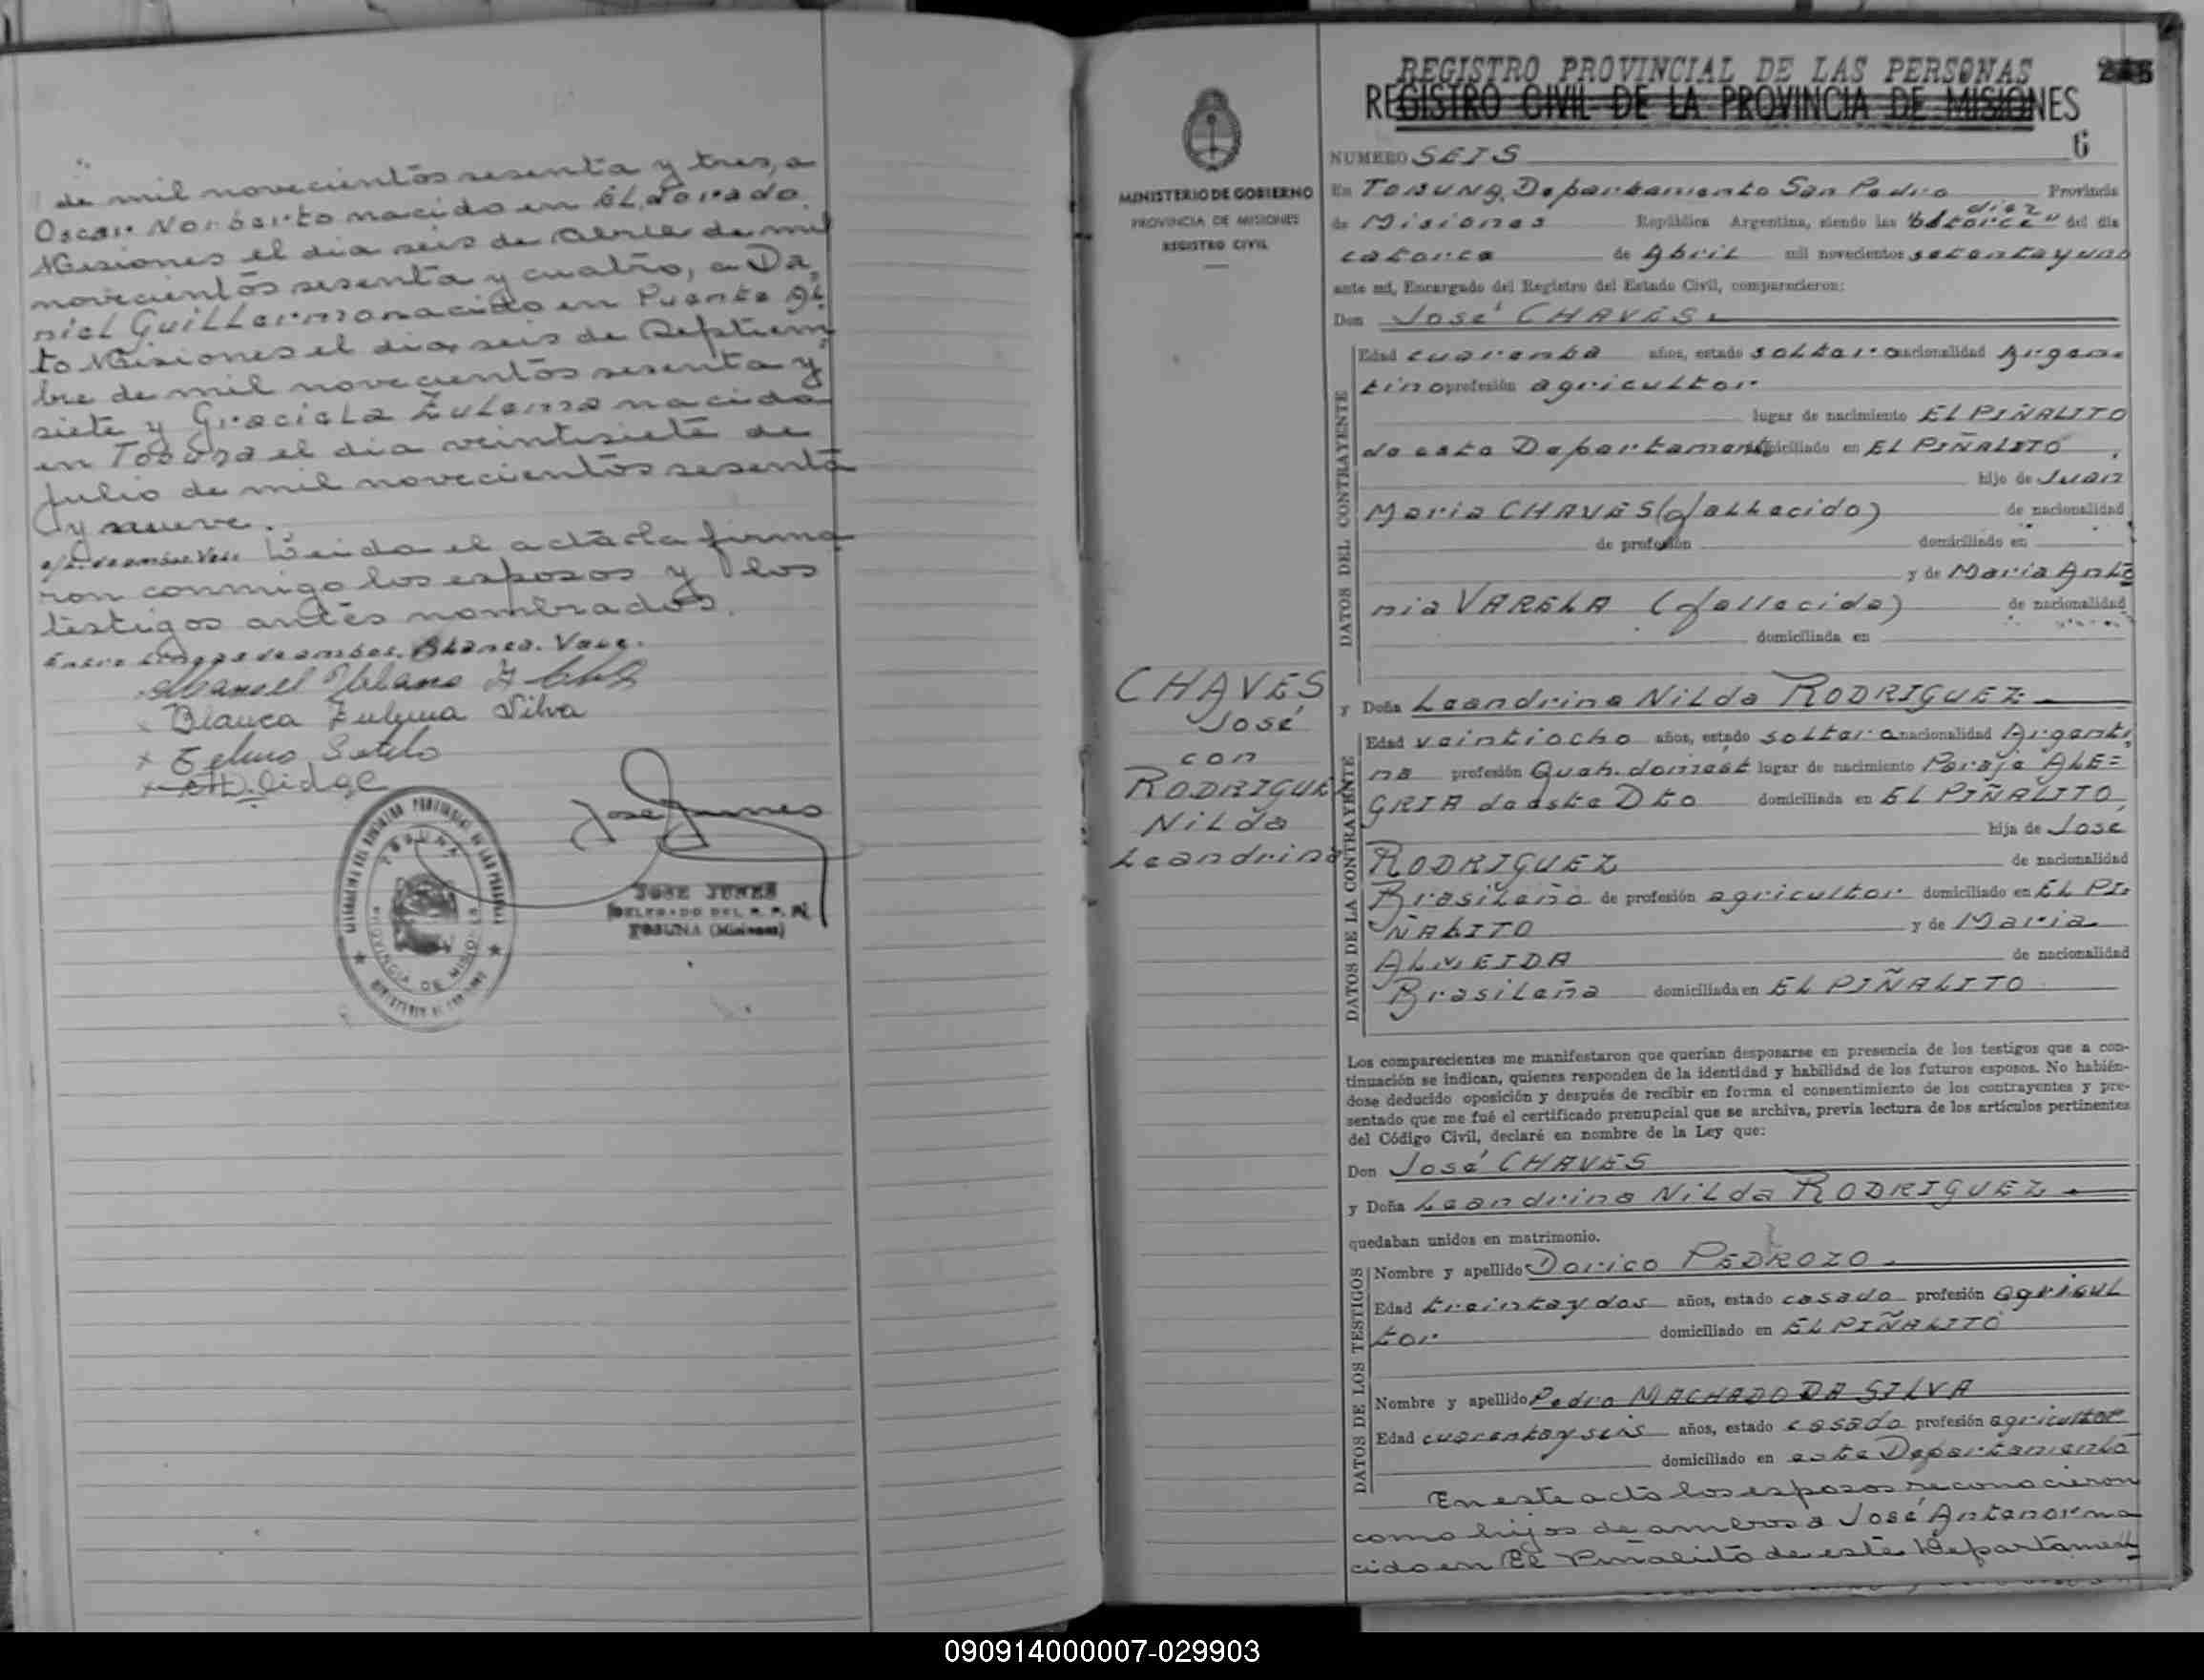 de mil novecientos sesenta y tres, a
Oscar Norberto nacido en ELdorado
Misiones el dia seis de Abril de mil
novecientos sesenta y cuatro, a Da
niel Guillermo nacido en Puerto
to Misiones el dia seis de Septiem
bre de mil novecientos sesenta y
siete y Graciela Zulema nacida
en Tobuna el dia veintisiete de
Julio de mil novecientos sesenta
y nueve.
Leida el acta la firma
ron conmigo los esposos y los
testigos antes nombrados.
Entre Lineas de ambos. Blanca. Vale.
Blanca Zulema Silva
Telmo Sotelo
TOBUNA
PROVINCIA DE MISIONES
JOSE JUNES
DELEGADO DEL R. P. P.
TOBUNA (Misiones)
MINISTERIO DE GOBIERNO
PROVINCIA DE MISIONES
REGISTRO CIVIL
CHAVES
José
con
RODRIGUEZ
Nilda
Leandrina
REGISTRO PROVINCIAL DE LAS PERSONAS
REGISTRO CIVIL DE LA PROVINCIA DE MISIONES
6
NUMERO SEIS
En TOBUNA, Departamento San Pedro Provincia
diez
de Misiones República Argentina, siendo las "catorce" del dia
catorce de Abril mil novecientos setenta y uno
ante mí, Encargado del Registro del Estado Civil, comparecieron:
Don José CHAVES.
DATOS DEL CONTRAYENTE
Edad cuarenta años, estado soltero nacionalidad Argen=
tino profesión agricultor
lugar de nacimiento EL PIÑALITO
de este Departamento domiciliado en EL PIÑALITO,
hijo de Juan
Maria CHAVES (fallecido) de nacionalidad
de profesión domiciliado en
y de Maria Anto
nia VARELA (fallecida) de nacionalidad
domiciliada en
y Doña Leandrina Nilda RODRIGUEZ
DATOS DE LA CONTRAYENTE
Edad veintiocho años, estado soltera nacionalidad Argenti
na profesión Queh. domést lugar de nacimiento Paraje ALE=
GRIA de este Dto domiciliada en EL PIÑALITO,
hija de José
RODRIGUEZ de nacionalidad
Brasileña de profesión agricultor domiciliado en EL PI=
ÑALITO y de Maria
ALMEIDA de nacionalidad
Brasileña domiciliada en EL PIÑALITO
Los comparecientes me manifestaron que querían desposarse en presencia de los testigos que a con-
tinuación se indican, quienes responden de la identidad y habilidad de los futuros esposos. No habién-
dose deducido oposición y después de recibir en forma el consentimiento de los contrayentes y pre-
sentado que me fué el certificado prenupcial que se archiva, previa lectura de los artículos pertinentes
del Código Civil, declaré en nombre de la Ley que:
Don José CHAVES
y Doña Leandrina Nilda RODRIGUEZ
quedaban unidos en matrimonio.
DATOS DE LOS TESTIGOS
Nombre y apellido Dorico PEDROZO
Edad treinta y dos años, estado casado profesión agricul
tor domiciliado en EL PIÑALITO
Nombre y apellido Pedro MACHADO DA SILVA
Edad cuarenta y seis años, estado casado profesión agricultor
domiciliado en este Departamento
En este acto los esposos reconocieron
como hijos de ambos a José Antenor na
cido en El Piñalito de este Departamen
090914000007-029903